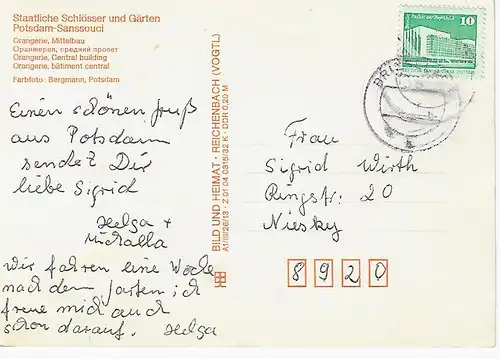 Staatliche Schlösser und Gärten
Potsdam-Sanssouci
Orangerie, Mittelbau
Оранжерея, средний пролет
Orangerie, Central building
Orangerie, bâtiment central
Farbfoto: Bergmann, Potsdam
Einen schönen Gruß
aus Potsdam
sendet Dir
liebe Sigrid
Helga +
Michaela
Wir fahren eine Woche
nach dem ; ich
freue mich auch
schon darauf. Helga
BILD UND HEIMAT · REICHENBACH (VOGTL)
A1/III/26/13 · Z 01 04 0315/32 K · DDR 0,20 M
Palast der Republik
10
BRI
Frau
Sigrid Wirth
Ringstr. 20
Niesky
8920